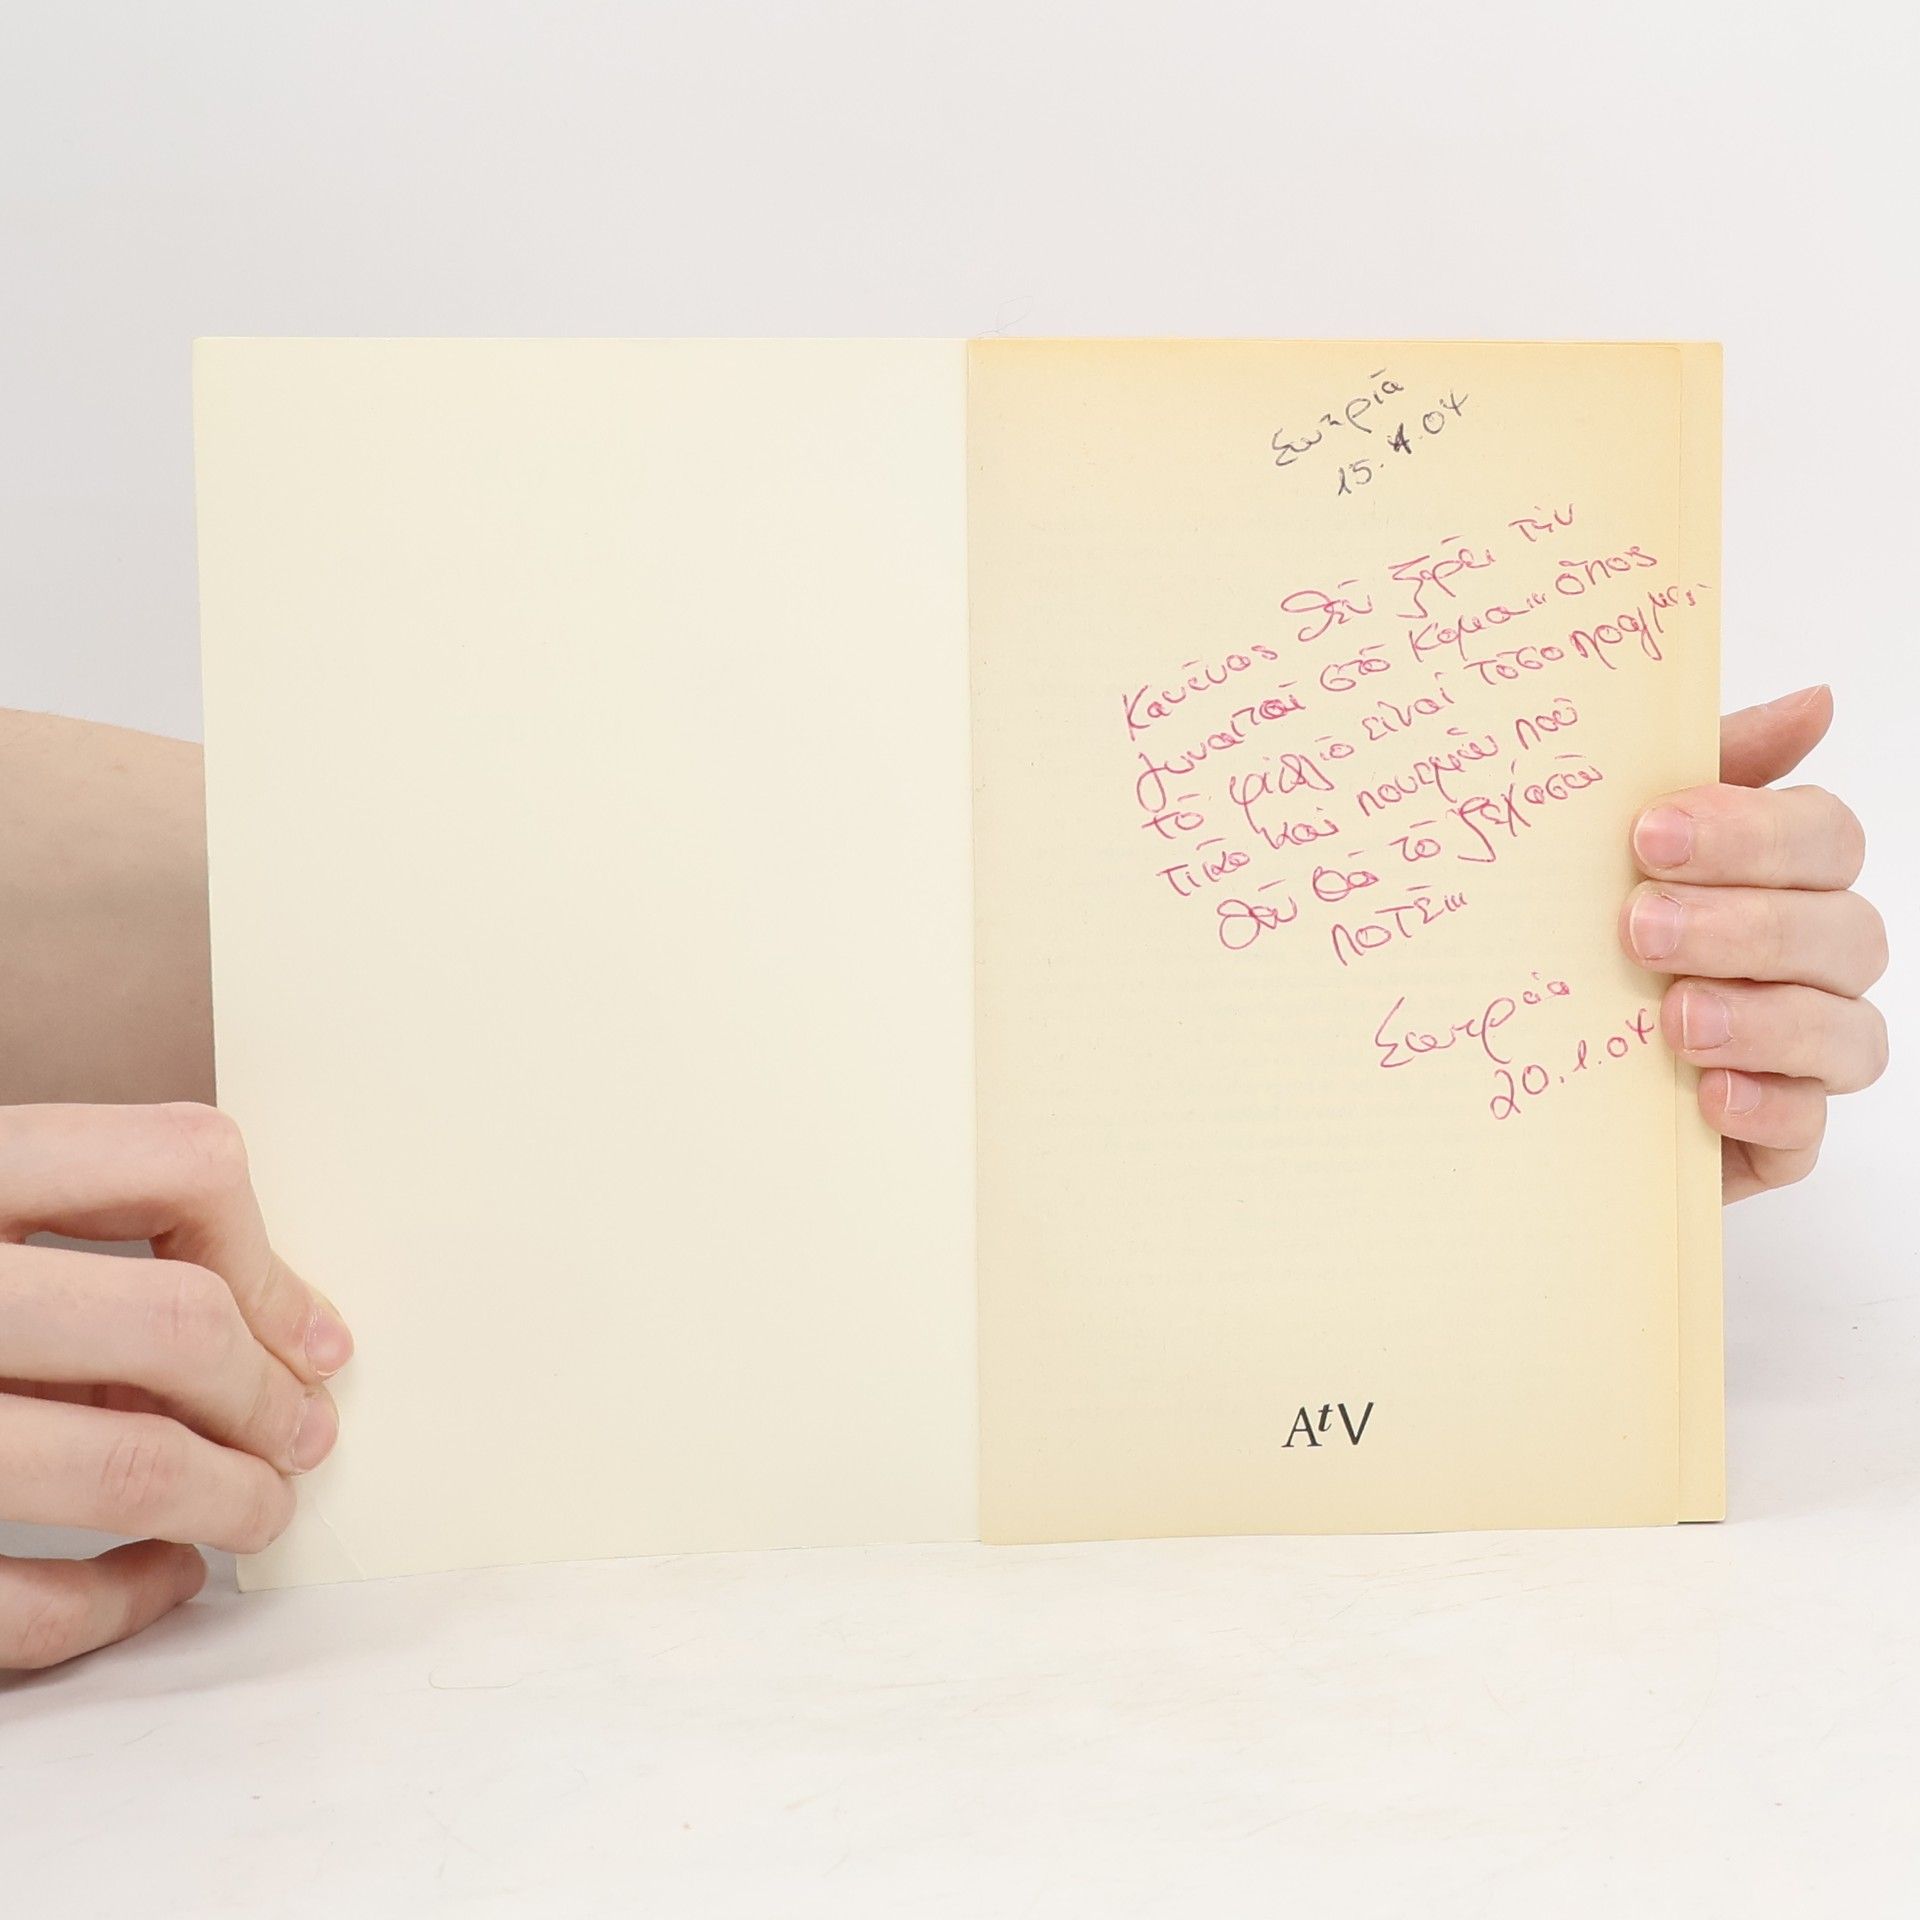 Σωτηρία
15.1.04
Κανένας δεν ξέρει την
στο κόμα... όπως
το φιλί είναι τόσο πραγμα-
τικό και που
δεν θα το ξεχάσω
ποτέ...
Σωτηρία
20.1.04
AtV